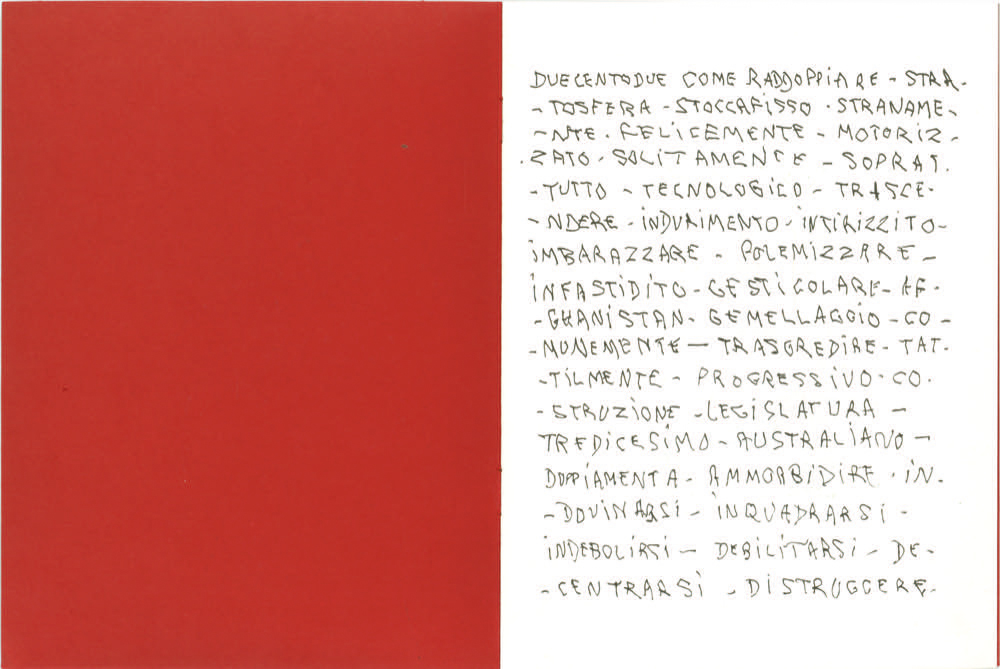 DUECENTODUE COME RADDOPPIARE - STRA-
- TOSFERA - STOCCAFISSO - STRANAME-
- NTE - FELICEMENTE - MOTORIZ-
- ZATO - SOLITAMENTE - SOPRAT-
- TUTTO - TECNOLOGICO - TRASCE-
- NDERE - INDURIMENTO - INTIRIZZITO -
IMBARAZZARE - POLEMIZZARE -
INFASTIDITO - GESTICOLARE - AF-
- GHANISTAN - GEMELLAGGIO - CO-
- MUNEMENTE - TRASGREDIRE - TAT-
- TILMENTE - PROGRESSIVO - CO-
- STRUZIONE - LEGISLATURA -
TREDICESIMO - AUSTRALIANO -
DOPPIAMENTA - AMMORBIDIRE - IN-
- DOVINARSI - INQUADRARSI -
INDEBOLIRSI - DEBILITARSI - DE-
- CENTRARSI - DISTRUGGERE -